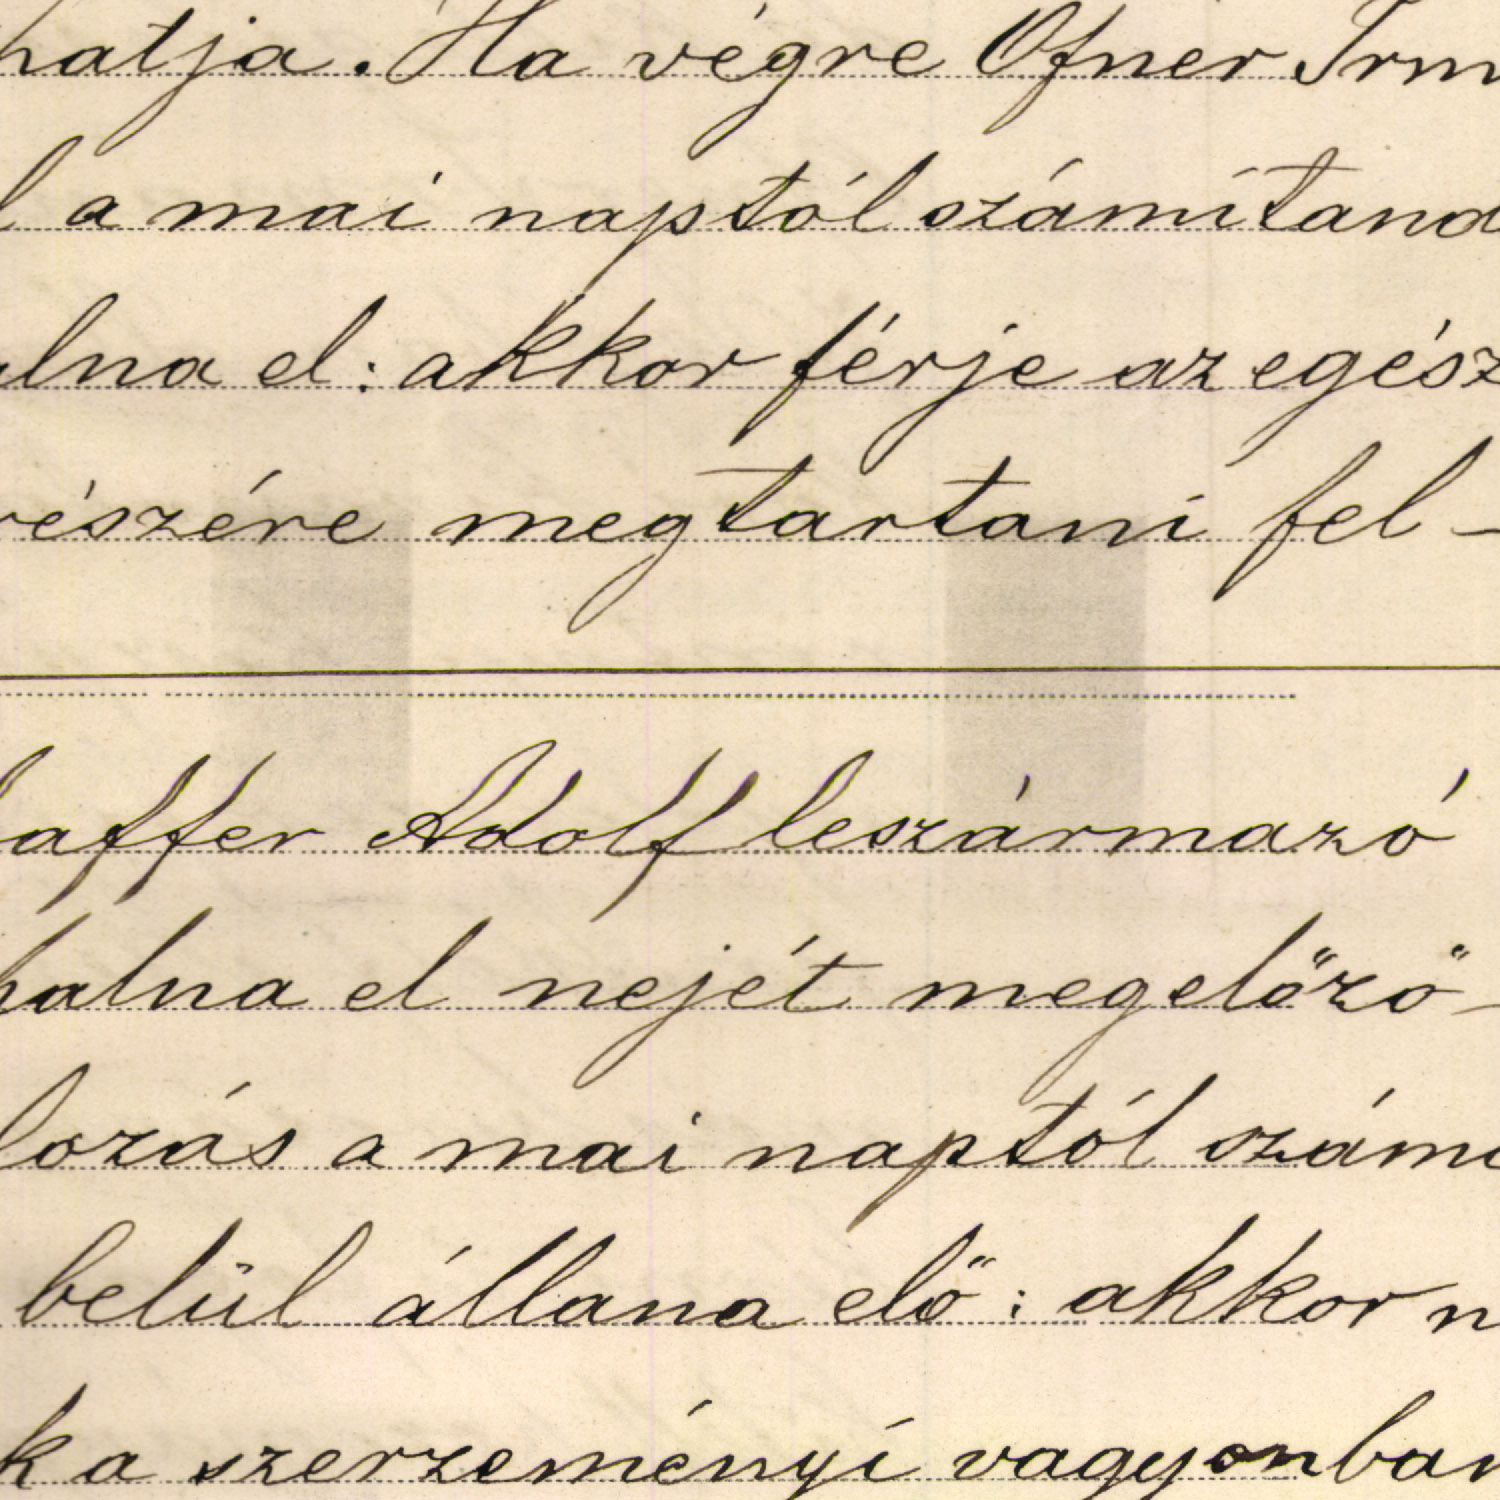 hatja. Ha végre Ofner Irm
l a mai naptól számítand
alna el: akkor férje az egész
részére megtartani fel-
affer Adolf leszármazó
halna el nejét megelőző-
lozás a mai naptól számí
belül állana elő: akkor n
k a szerzeményi vagyonban